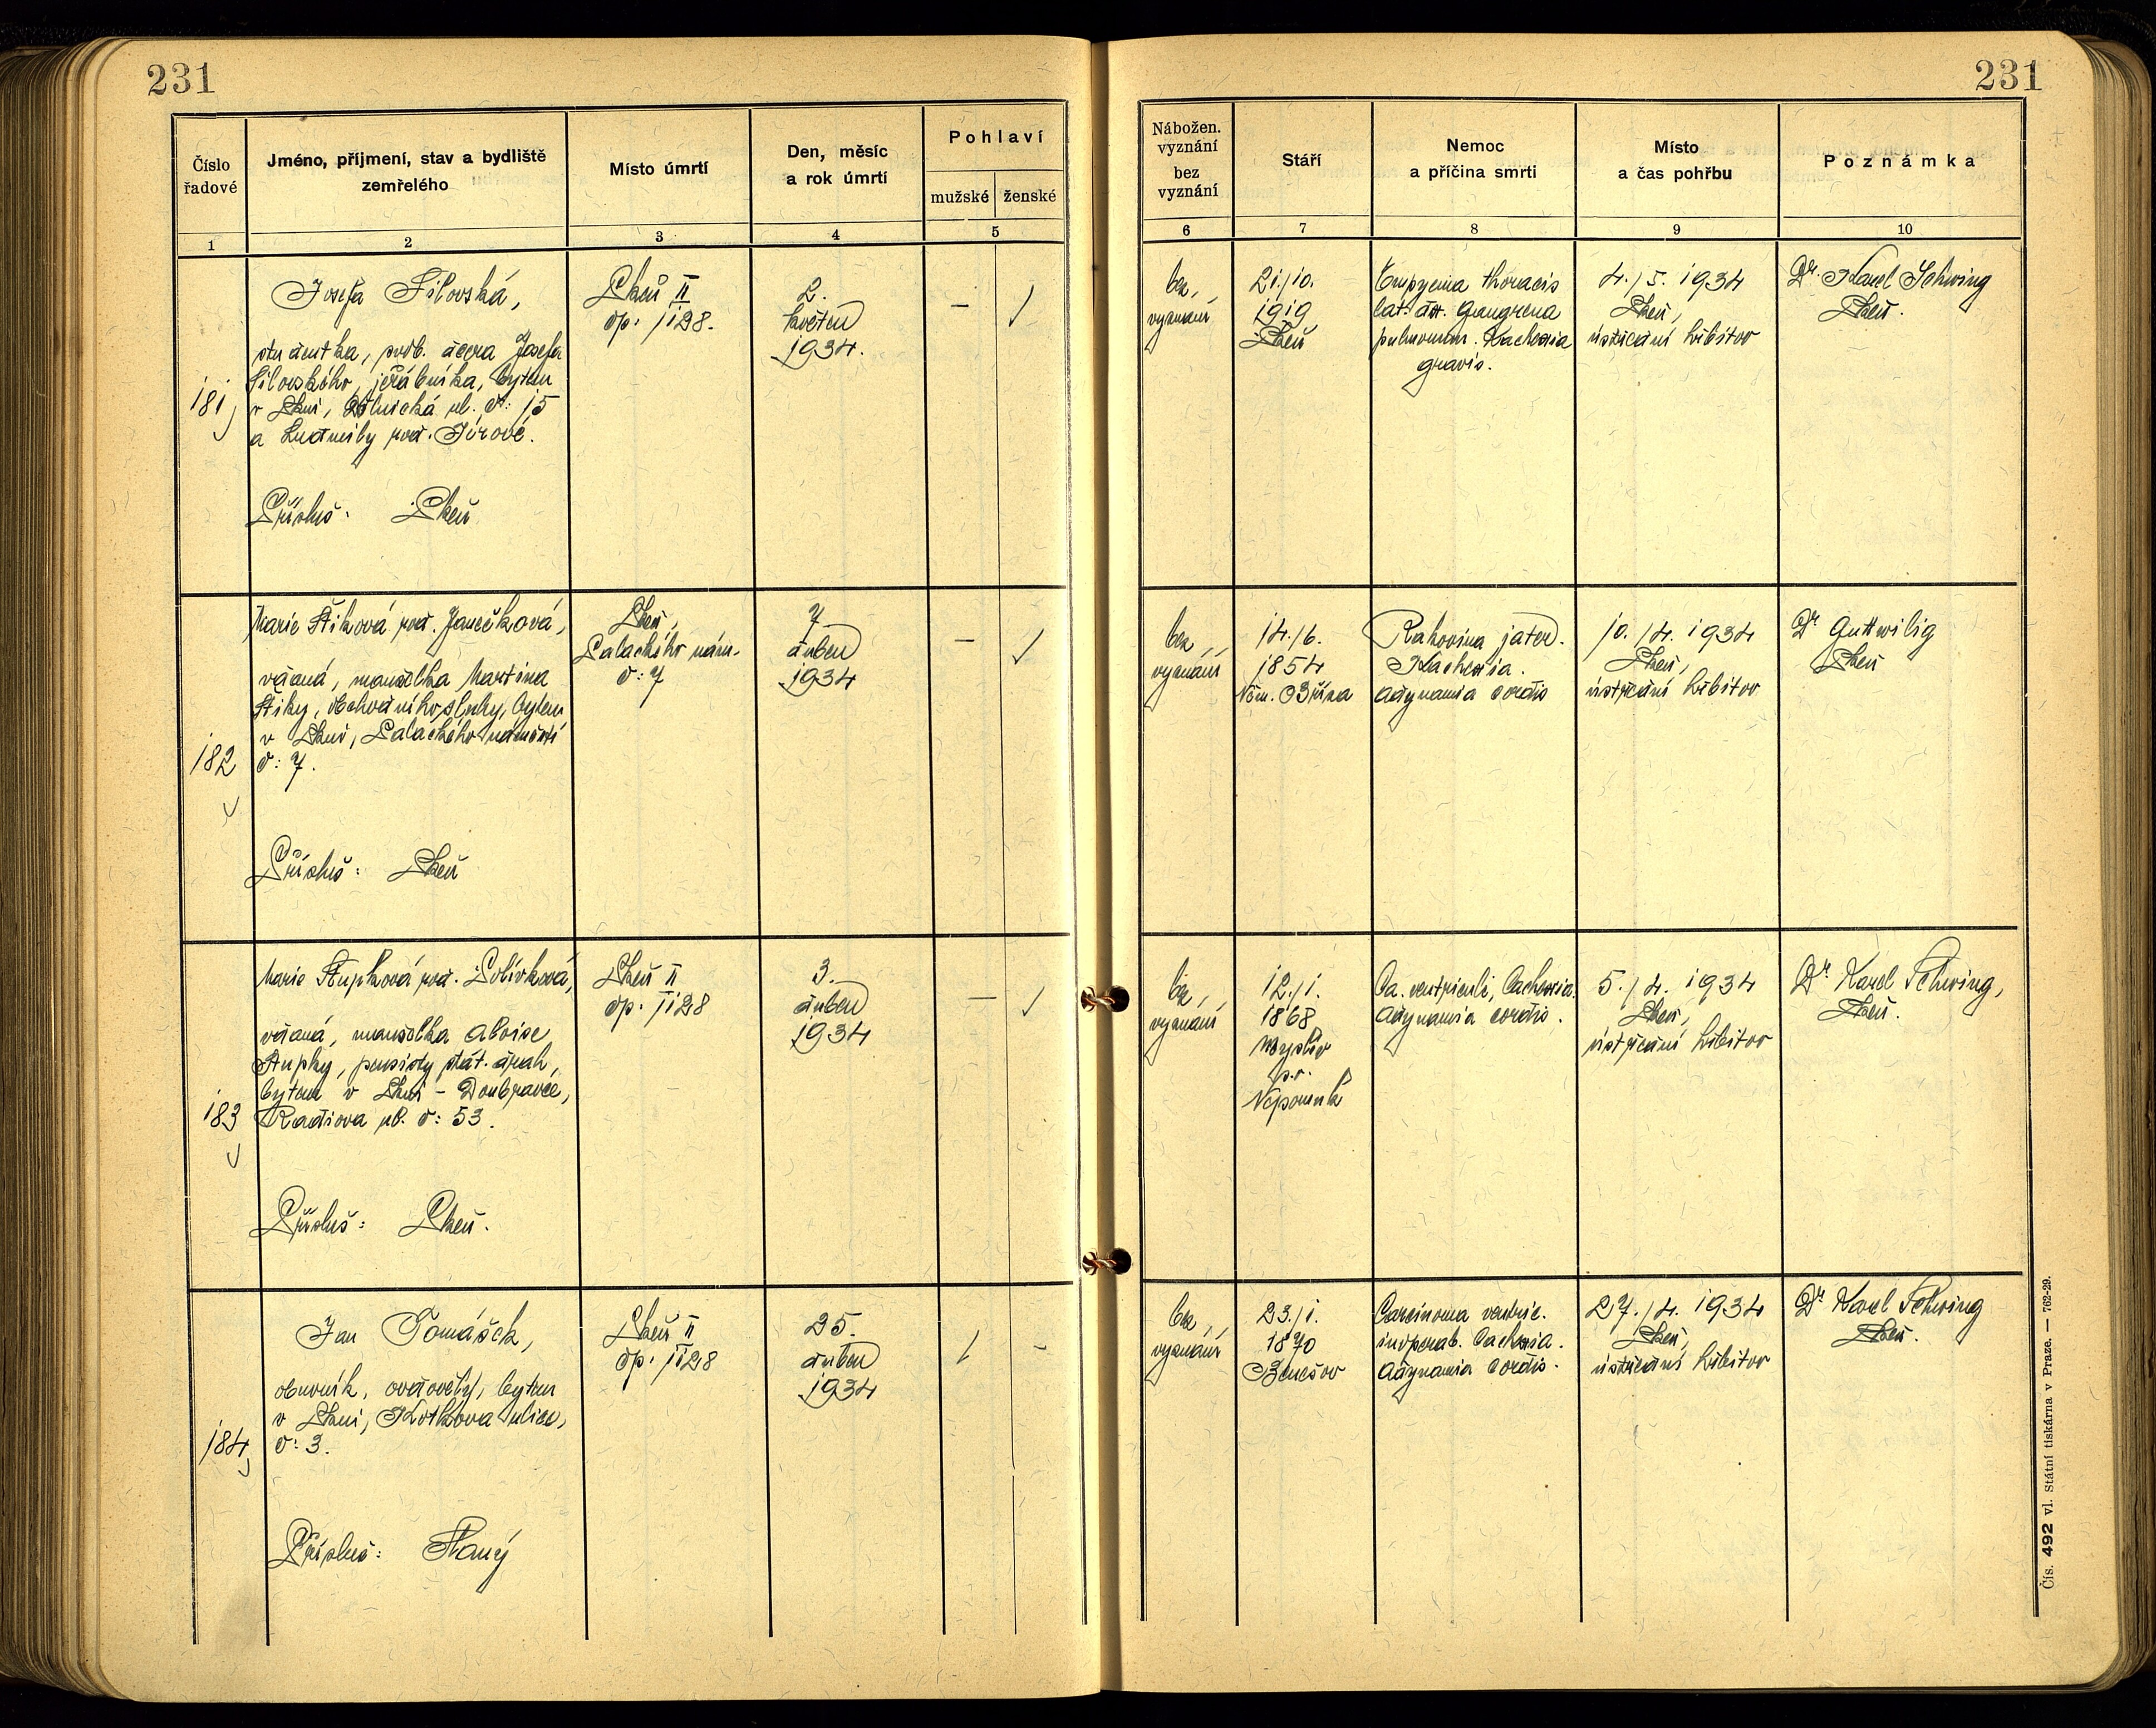 231
231
Číslo
řadové
Jméno, příjmení, stav a bydliště
zemřelého
Místo úmrtí
Den, měsíc
a rok úmrtí
Pohlaví
mužské
ženské
Nábožen.
vyznání
bez
vyznání
Stáří
Nemoc
a příčina smrti
Místo
a čas pohřbu
Poznámka
1
2
3
4
5
6
7
8
9
10
181
Josefa Silovská,
studentka, poslb. dcera Josefa
Silovského, jeřábníka, bytem
v Plzni, ul. č: 15
a Ludmily roz. Jírové.
Přísluš: Plzeň
Plzeň II
čp. 1128.
2.
květen
1934.
–
bez
vyznání
21./10.
1919
Plzeň
Empyema thoracis
lat. Gangrena
pulmonum. Kachexia
gravis.
4./5. 1934
Plzeň,
ústřední hřbitov
Dr. Karel Schwing
Plzeň.
182
Marie Štiková roz. Janečková,
vdaná, manželka Martina
Štiky, obchodního sluhy, bytem
v Plzni, Palackého náměstí
č: 7.
Přísluš: Plzeň
Plzeň,
Palackého nám.
č: 7
7.
duben
1934
–
bez
vyznání
14./6.
1854
Něm. Bříza
Rakovina jater.
Kachexia.
Adynamia cordis
10./4. 1934
Plzeň,
ústřední hřbitov
Dr Guttwilig
Plzeň
183
Marie Stupková roz. Polívková,
vdaná, manželka Aloise
Stupky, pensisty stát. drah,
bytem v Plzni - Doubravce,
Radiova ul. č: 53.
Přísluš: Plzeň.
Plzeň II
čp. 1128
3.
duben
1934
–
bez
vyznání
12./1.
1868
Myslív
p.
Nepomuk
Ca. ventriculi, Cachexia.
Adynamia cordis.
5./4. 1934
Plzeň,
ústřední hřbitov
Dr. Karel Schwing,
Plzeň.
184
Jan Tomášek,
obuvník, ovdovělý, bytem
v Plzni, Kotkova ulice,
č: 3.
Přísluš: Slaný
Plzeň II
čp. 1128
25.
duben
1934
-
bez
vyznání
23./1.
1870
Benešov
Carcinoma ventric.
inoperab. Cachexia.
Adynamia cordis.
27./4. 1934
Plzeň,
ústřední hřbitov
Dr Karel Schwing
Plzeň.
Čís. 492 vl. Státní tiskárna v Praze. — 762-29.